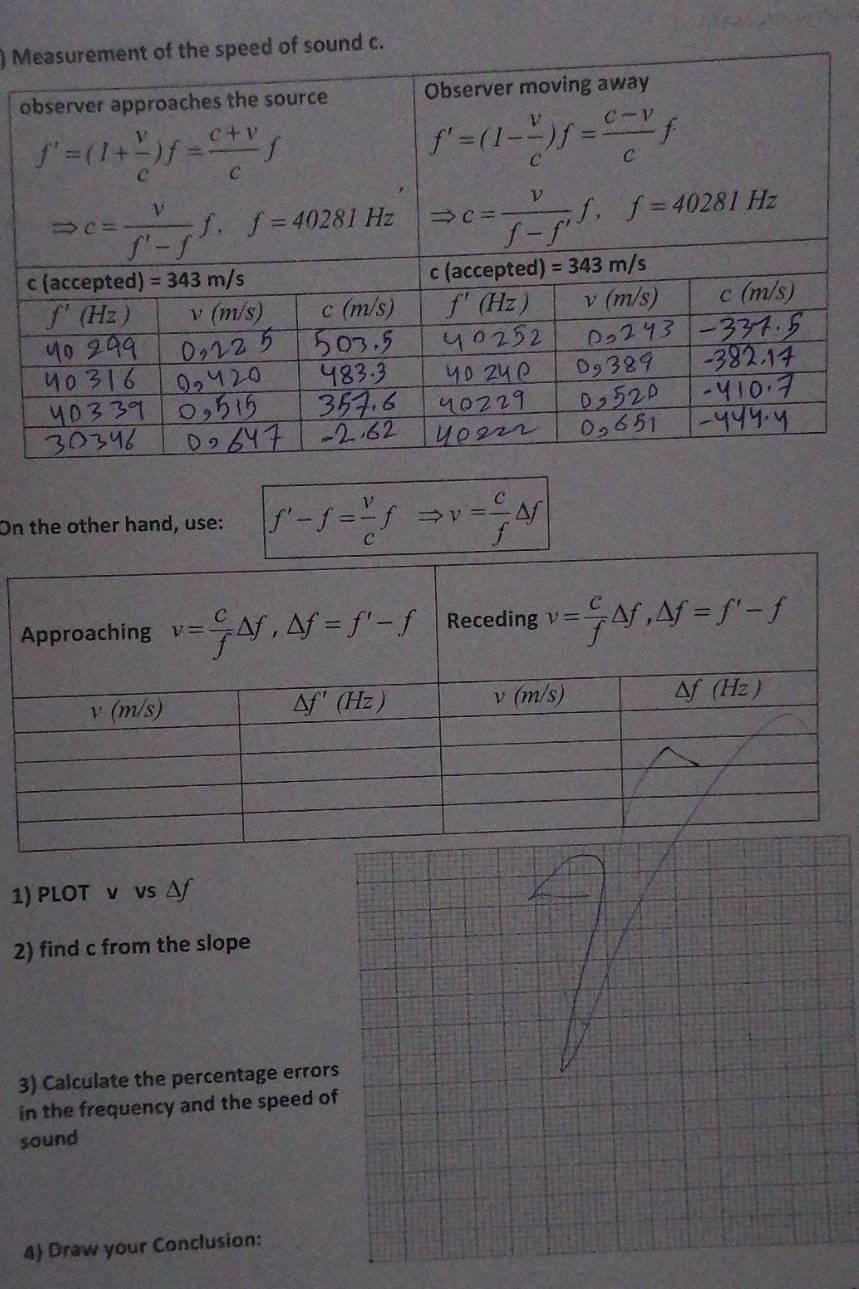 ) Measurement of the speed of sound c.
observer approaches the source
f' = (1 + v/c) f = (c + v)/c f
⇒ c = v/(f' − f) f, f = 40281 Hz
Observer moving away
f' = (1 − v/c) f = (c − v)/c f
⇒ c = v/(f − f') f, f = 40281 Hz
c (accepted) = 343 m/s c (accepted) = 343 m/s
f' (Hz) v (m/s) c (m/s) f' (Hz) v (m/s) c (m/s)
40 299 0,225 503.5 40252 0,243 -337.5
40316 0,420 483.3 40 240 0,389 -382.17
40339 0,515 357.6 40229 0,520 -410.7
30346 0,647 -2.62 40222 0,651 -444.4
On the other hand, use: f' − f = v/c f ⇒ v = c/f Δf
Approaching v = c/f Δf , Δf = f' − f Receding v = c/f Δf , Δf = f' − f
v (m/s) Δf' (Hz) v (m/s) Δf (Hz)
1) PLOT v vs Δf
2) find c from the slope
3) Calculate the percentage errors
in the frequency and the speed of
sound
4) Draw your Conclusion: